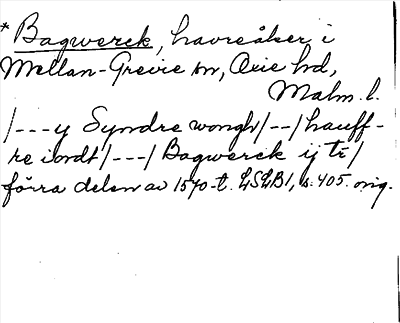 * Bagwerck, havreåker i
Mellan-Grevie sn, Oxie hd,
Malm. l.
/---y Syndre wongh/--/hauff-
re iordt/---/Bagwerck ij tr/
förra delen av 1570-t. LSLB1, s. 405. orig.